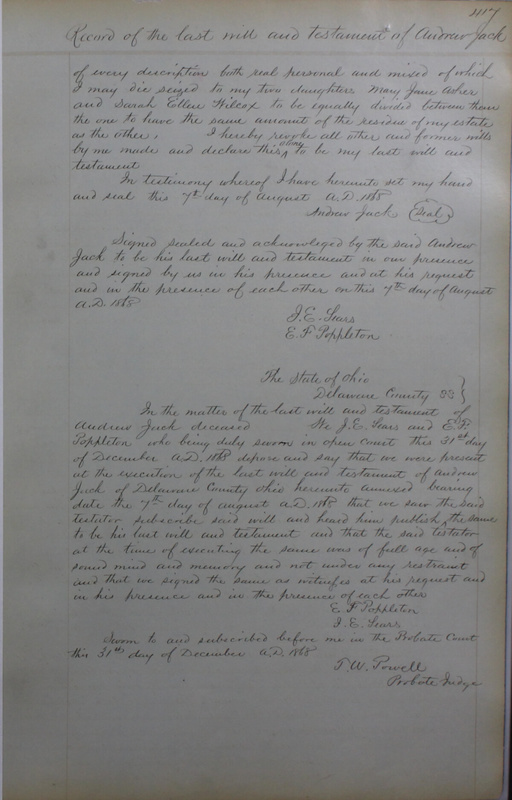 417
Record of the last will and testament of Andrew Jack
of every description both real personal and mixed of which
I may die seized to my two daughters Mary Jane Asher
and Sarah Ellen Wilcox to be equally divided between them
the one to have the same amount of the residue of my estate
as the other. I hereby revoke all other and former wills
by me made and declare this to be my last will and
testament
In testimony whereof I have hereunto set my hand
and seal this 7th day of August A.D. 1868
Andrew Jack (Seal)
Signed sealed and acknowledged by the said Andrew
Jack to be his last will and testament in our presence
and signed by us in his presence and at his request
and in the presence of each other on this 7th day of August
A.D. 1868
J. E. Sears
E. F. Poppleton
The State of Ohio
Delaware County SS }
In the matter of the last will and testament of
Andrew Jack deceased We J. E. Sears and E. F.
Poppleton who being duly sworn in open Court this 31st day
of December A.D. 1868 depose and say that we were present
at the execution of the last will and testament of Andrew
Jack of Delaware County Ohio hereunto annexed bearing
date the 7th day of August A.D. 1868 that we saw the said
testator subscribe said will and heard him publish the same
to be his last will and testament and that the said testator
at the time of executing the same was of full age and of
sound mind and memory and not under any restraint
and that we signed the same as witnesses at his request and
in his presence and in the presence of each other
E. F. Poppleton
J. E. Sears
Sworn to and subscribed before me in the Probate Court
this 31st day of December A.D. 1868
T. W. Powell
Probate Judge